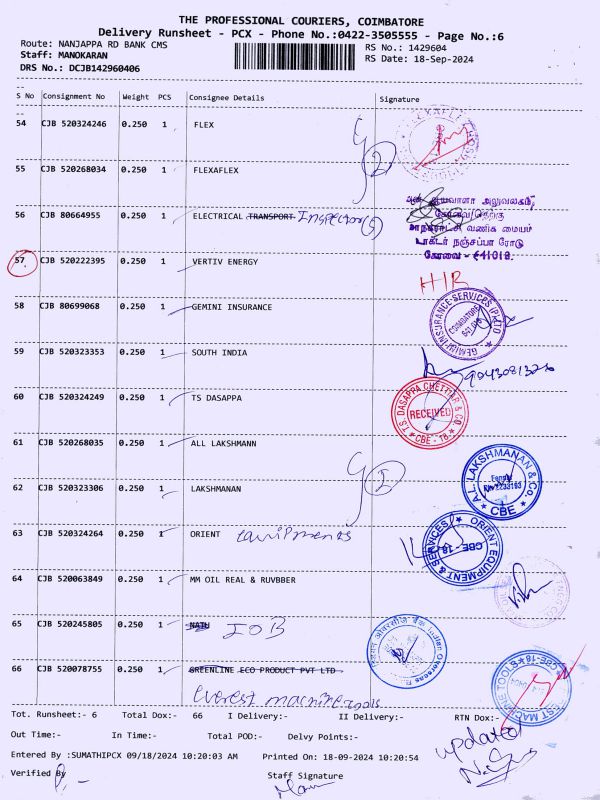 THE PROFESSIONAL COURIERS, COIMBATORE
Delivery Runsheet - PCX - Phone No.:0422-3505555 - Page No.:6
Route: NANJAPPA RD BANK CMS
RS No.: 1429604
Staff: MANOKARAN
RS Date: 18-Sep-2024
DRS No.: DCJB142960406
S No Consignment No Weight PCS Consignee Details Signature
54 CJB 520324246 0.250 1 FLEX
55 CJB 520268034 0.250 1 FLEXAFLEX
56 CJB 80664955 0.250 1 ELECTRICAL TRANSPORT Inspector(s)
கோவை/தெற்கு
மாநகராட்சி வணிக மையம்
டாக்டர் நஞ்சப்பா ரோடு
கோவை - 641018.
57 CJB 520222395 0.250 1 VERTIV ENERGY
58 CJB 80699068 0.250 1 GEMINI INSURANCE
GEMINI INSURANCE SERVICES (P) LTD
COIMBATORE
59 CJB 520323353 0.250 1 SOUTH INDIA
60 CJB 520324249 0.250 1 TS DASAPPA
T.S. DASAPPA CHETTIAR & CO.
RECEIVED
CBE - 18
61 CJB 520268035 0.250 1 ALL LAKSHMANN
A.L. LAKSHMANAN & CO.
CBE
62 CJB 520323306 0.250 1 LAKSHMANAN
63 CJB 520324264 0.250 1 ORIENT Equipments
ORIENT EQUIPMENT & SERVICES
CBE - 18
64 CJB 520063849 0.250 1 MM OIL REAL & RUVBBER
65 CJB 520245805 0.250 1 NATU IOB
इंडियन ओवरसीज़ बैंक Indian Overseas
66 CJB 520078755 0.250 1 GREENLINE ECO PRODUCT PVT LTD
Everest machine tools
EST MACHINE TOOLS CBE-18
Tot. Runsheet:- 6 Total Dox:- 66 I Delivery:- II Delivery:- RTN Dox:-
Out Time:- In Time:- Total POD:- Delvy Points:-
updated
Entered By :SUMATHIPCX 09/18/2024 10:20:03 AM Printed On: 18-09-2024 10:20:54
Verified By
Staff Signature